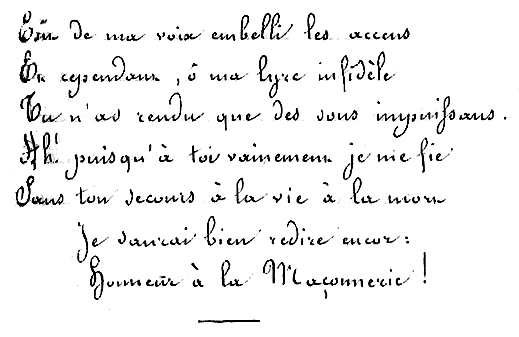 Eût de ma voix embelli les accens
Et cependant, ô ma lyre infidèle
Tu n'as rendu que des sons impuissans.
Ah! puisqu'à toi vainement je me fie
Sans ton secours à la vie à la mort
Je saurai bien redire encor:
Honneur à la Maçonnerie!